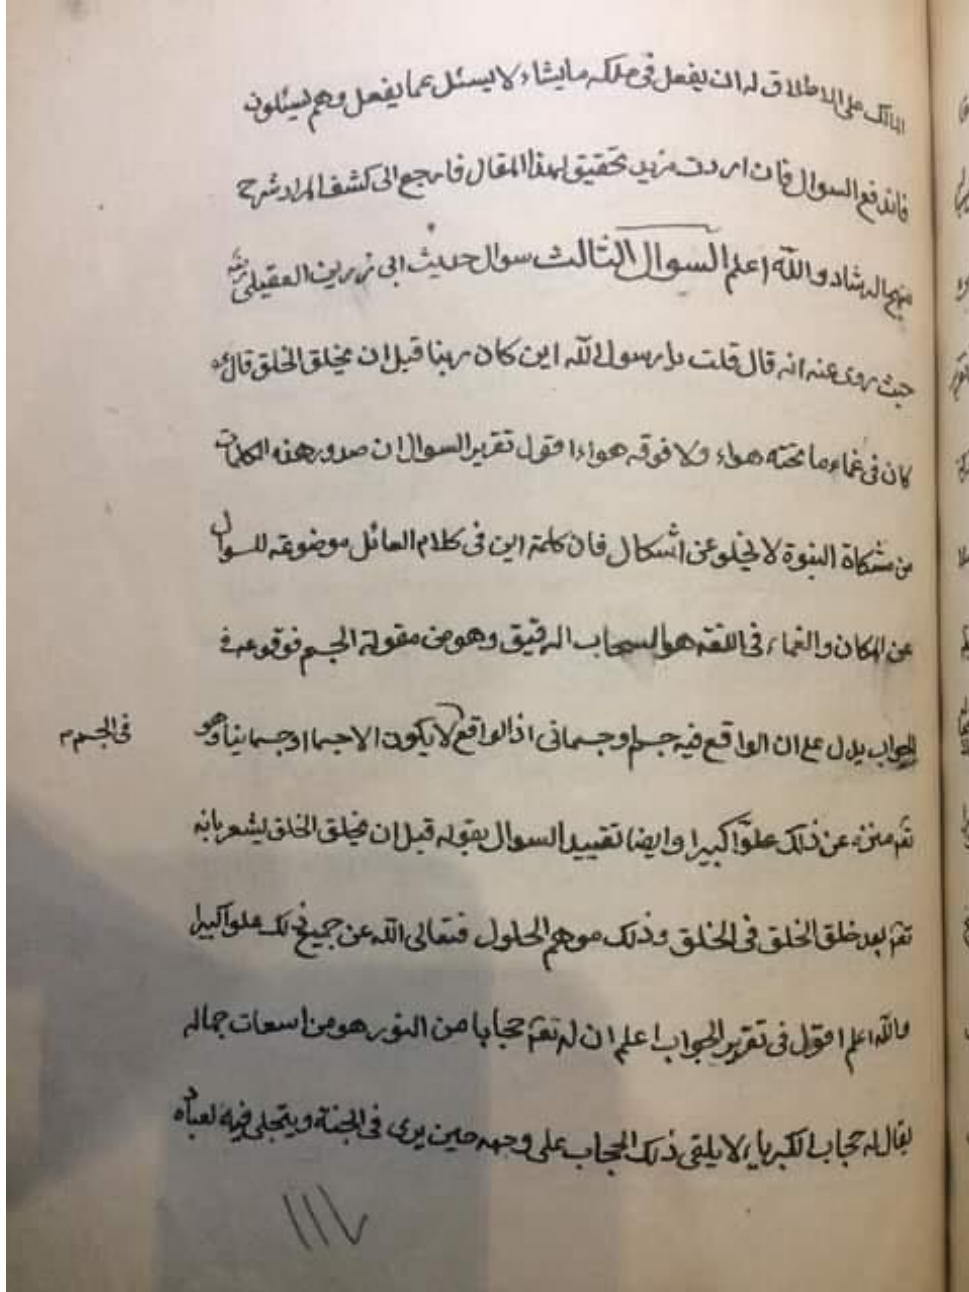 المالك على الاطلاق له ان يفعل فى ملكه ما يشاء لا يسئل عما يفعل وهم يسئلون
فاندفع السوال فان اردت مزيد تحقيق لهذا المقال فارجع الى كشف المراد شرح
منهج الرشاد والله اعلم السوال الثالث سوال حديث ابى رزين العقيلى
حيث روى عنه انه قال قلت يا رسول الله اين كان ربنا قبل ان يخلق الخلق قال
كان فى غماء ما تحته هواء ولا فوقه هواء اقول تقرير السوال ان صدور هذه الكلمات
من مشكاة النبوة لا يخلو عن اشكال فان كلمة اين فى كلام القائل موضوعة للسوال
عن المكان والغماء فى اللغة هو السحاب الرقيق وهو من مقولة الجسم فوقوعه فى
الجواب يدل على ان الواقع فيه جسم وجسمانى اذ الواقع لا يكون الا جسما او جسمانيا وهو
فى الجسم
تع منزه عن ذلك علوّا كبيرا وايضا تقييد السوال بقوله قبل ان يخلق الخلق يشعر بانه
تع بعد خلق الخلق فى الخلق وذلك موهم الحلول فتعالى الله عن جميع ذلك علوا كبيرا
والله اعلم اقول فى تقرير الجواب اعلم ان له تع حجابا من النور هو من جماله
يقال له حجاب الكبرياء لا يلقى ذلك الحجاب على وجهه حين يرى فى الجنة ويتجلى فيه لعباده